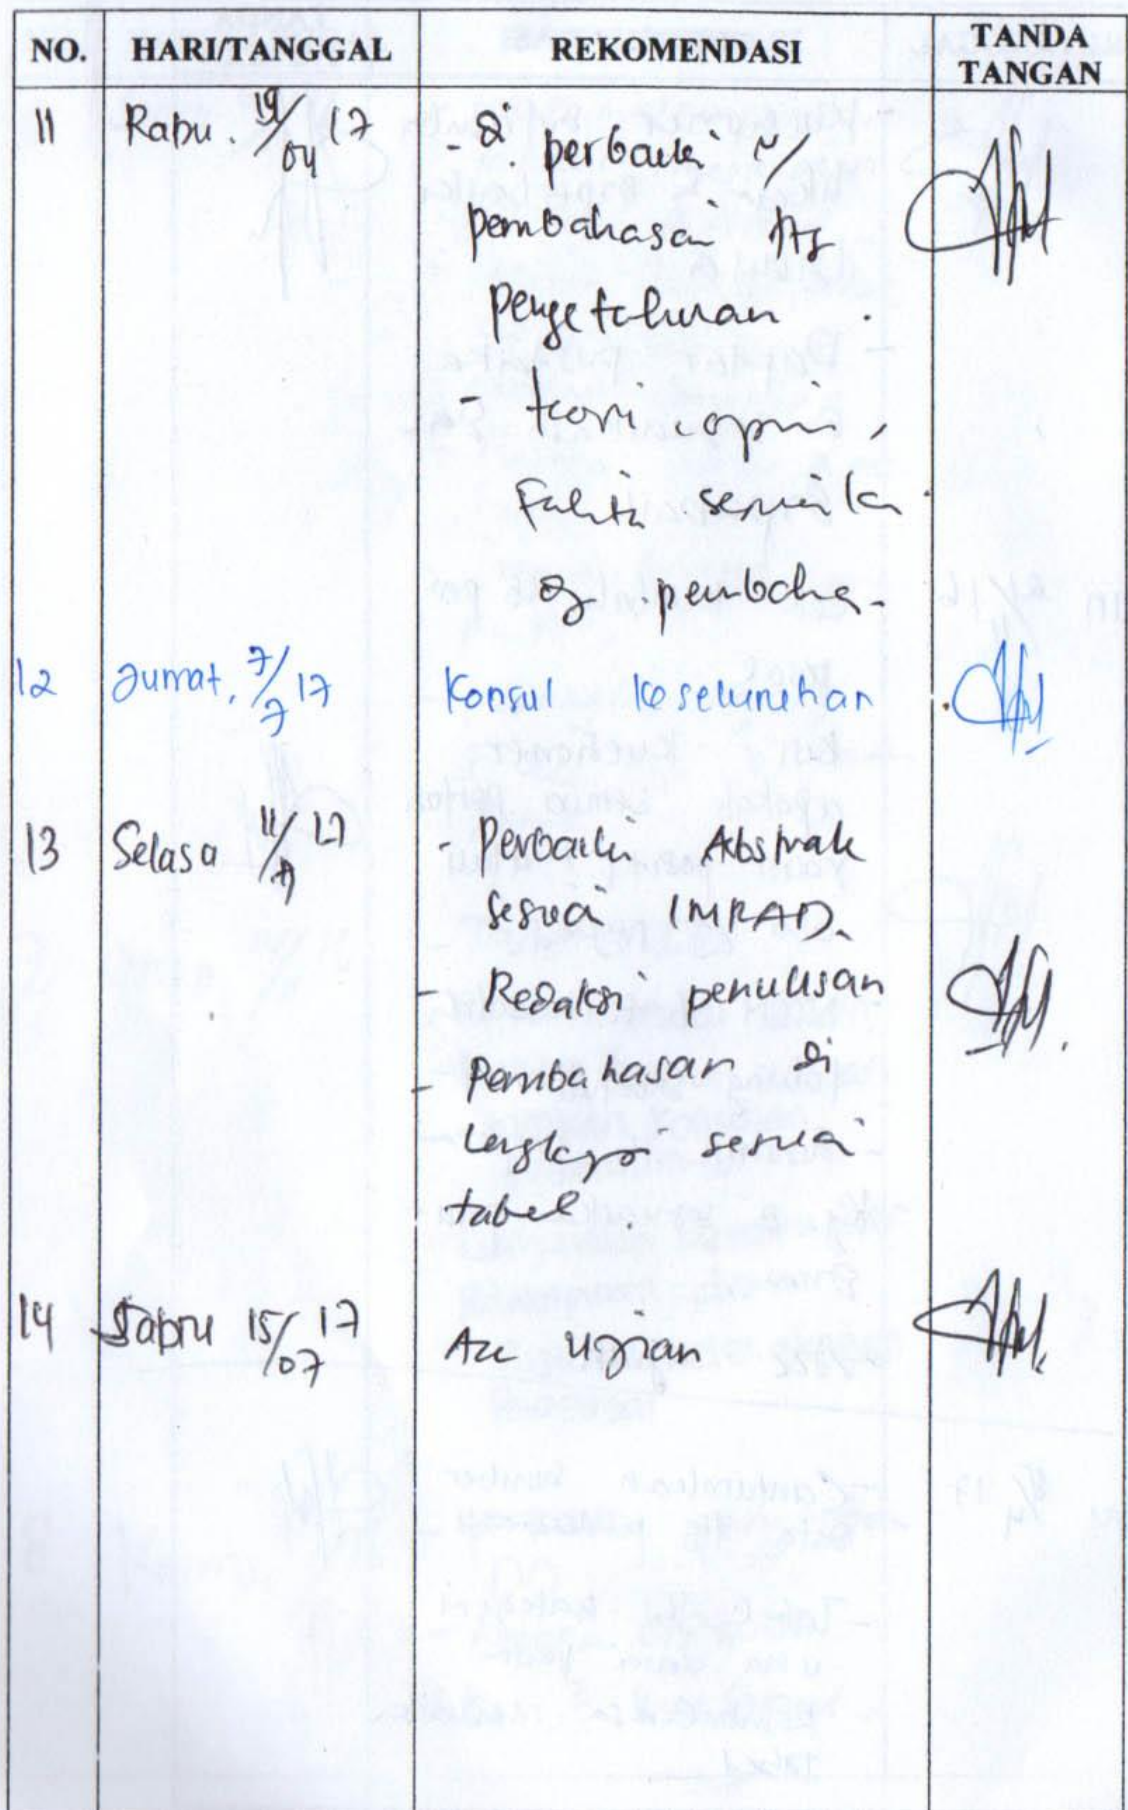 NO. HARI/TANGGAL REKOMENDASI TANDA TANGAN
11 Rabu. 19/04 17 - di perbaiki u/
pembahasan ttg
pengetahuan.
- teori, opini,
Fakta sesuaikan
dg pembahas.
12 Jumat, 7/7 17 Konsul keseluruhan
13 Selasa 11/7 17 - Perbaiki Abstrak
sesuai IMRAD.
- Redaksi penulisan
- Pembahasan di
- lengkapi sesuai
tabel.
14 Sabtu 15/07 17 Acc ujian